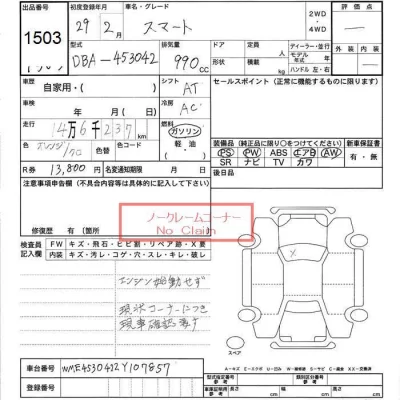 出品番号 初度登録年月 車名・グレード 2WD ・ 4WD 評価点
1503 29年2月 スマート
型式 排気量 ドア 定員 ディーラー・並行 外装 内装
DBA-453042 990cc 人 モデル年式 年 ハンドル 左・右
車歴 自家用・( ) シフト AT セールスポイント(正常に機能するものに限ります)
車検 年 月(日) 冷房 AC
走行 14万6千237km 燃料 ガソリン 軽油
色 色替 色コード 装備品(純正品に限り○をつけてください) 新車保証書
PS PW ABS エアB AW 有・無
SR ナビ TV カワ
R券 13,800円 名変期限 月 日 後日品
注意事項申告欄(不具合内容等は具体的に記入して下さい)
ノークレームコーナー
No Claim
修復歴 有(箇所 )
検査員記入欄 FW キズ・飛石・ヒビ割・リペア跡・X要
内装 キズ・汚レ・コゲ・穴・スレ・キレ・破レ
エンジン始動せず
現状コーナーにつき
現車確認要す
スペア
車台番号 WME4530422Y107857
登録番号